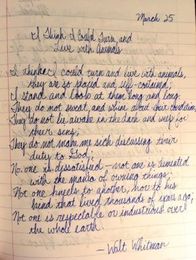 March 25
I Think I Could Turn and
Live with Animals
I think I could turn and live with animals,
they are so placid and self-contained,
I stand and look at them long and long.
They do not sweat and whine about their condition,
They do not lie awake in the dark and weep for
their sins,
They do not make me sick discussing their
duty to God,
No one is dissatisfied - not one is demented
with the mania of owning things,
Not one kneels to another, nor to his
kind that lived thousands of years ago,
Not one is respectable or industrious over
the whole earth.
- Walt Whitman